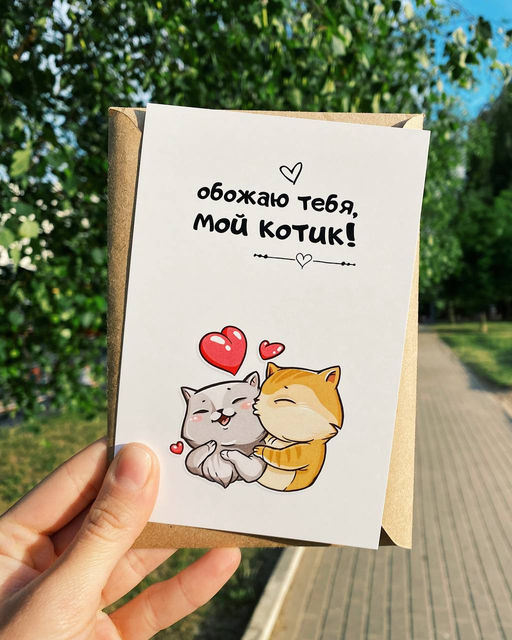 обожаю тебя,
мой котик!